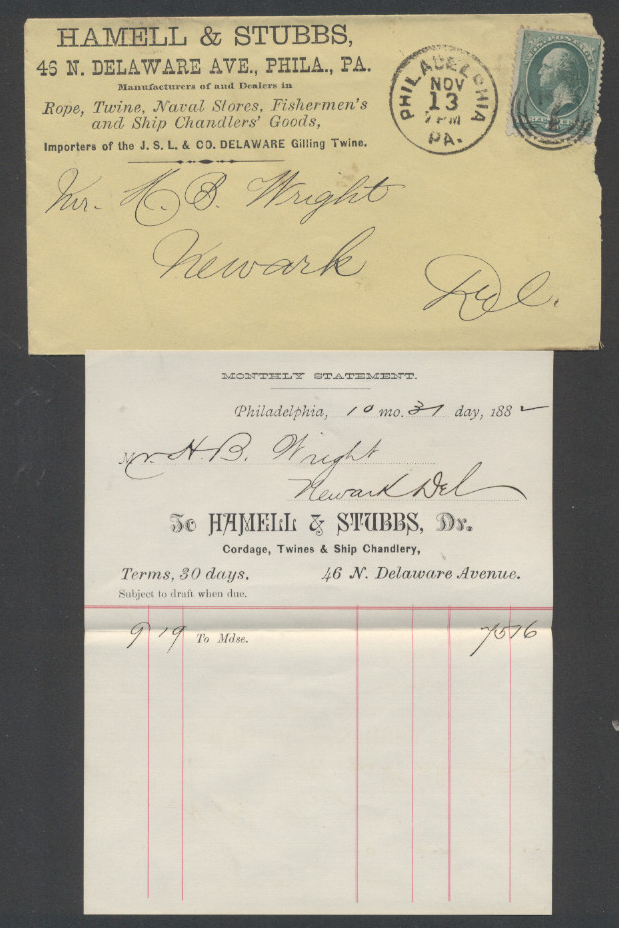 HAMELL & STUBBS,
46 N. DELAWARE AVE., PHILA., PA.
Manufacturers of and Dealers in
Rope, Twine, Naval Stores, Fishermen's
and Ship Chandlers' Goods,
Importers of the J. S. L. & CO. DELAWARE Gilling Twine.
PHILADELPHIA
NOV
13
7 PM
PA.
Mr. H. B. Wright
Newark
Del.
MONTHLY STATEMENT.
Philadelphia, 10 mo. 31 day, 1882
Mr. H. B. Wright
Newark Del
To HAMELL & STUBBS, Dr.
Cordage, Twines & Ship Chandlery,
Terms, 30 days. 46 N. Delaware Avenue.
Subject to draft when due.
9 19 To Mdse. 75 16